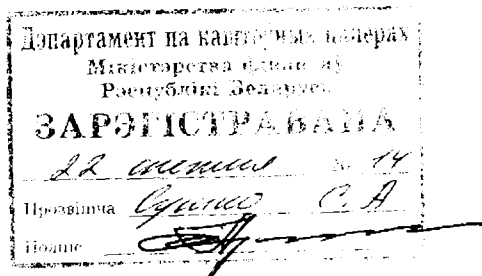 Дэпартамент па каштоўных паперах
Міністэрства фінансаў
Рэспублікі Беларусь
ЗАРЭГІСТРАВАНА
22 № 14
Прозвішча С. А
Подпіс